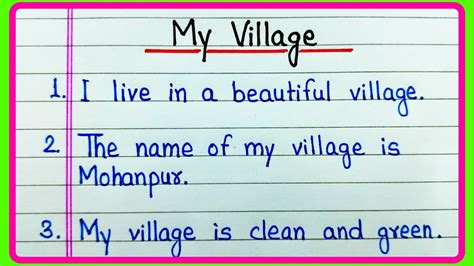 My Village
1. I live in a beautiful village.
2. The name of my village is
Mohanpur.
3. My village is clean and green.